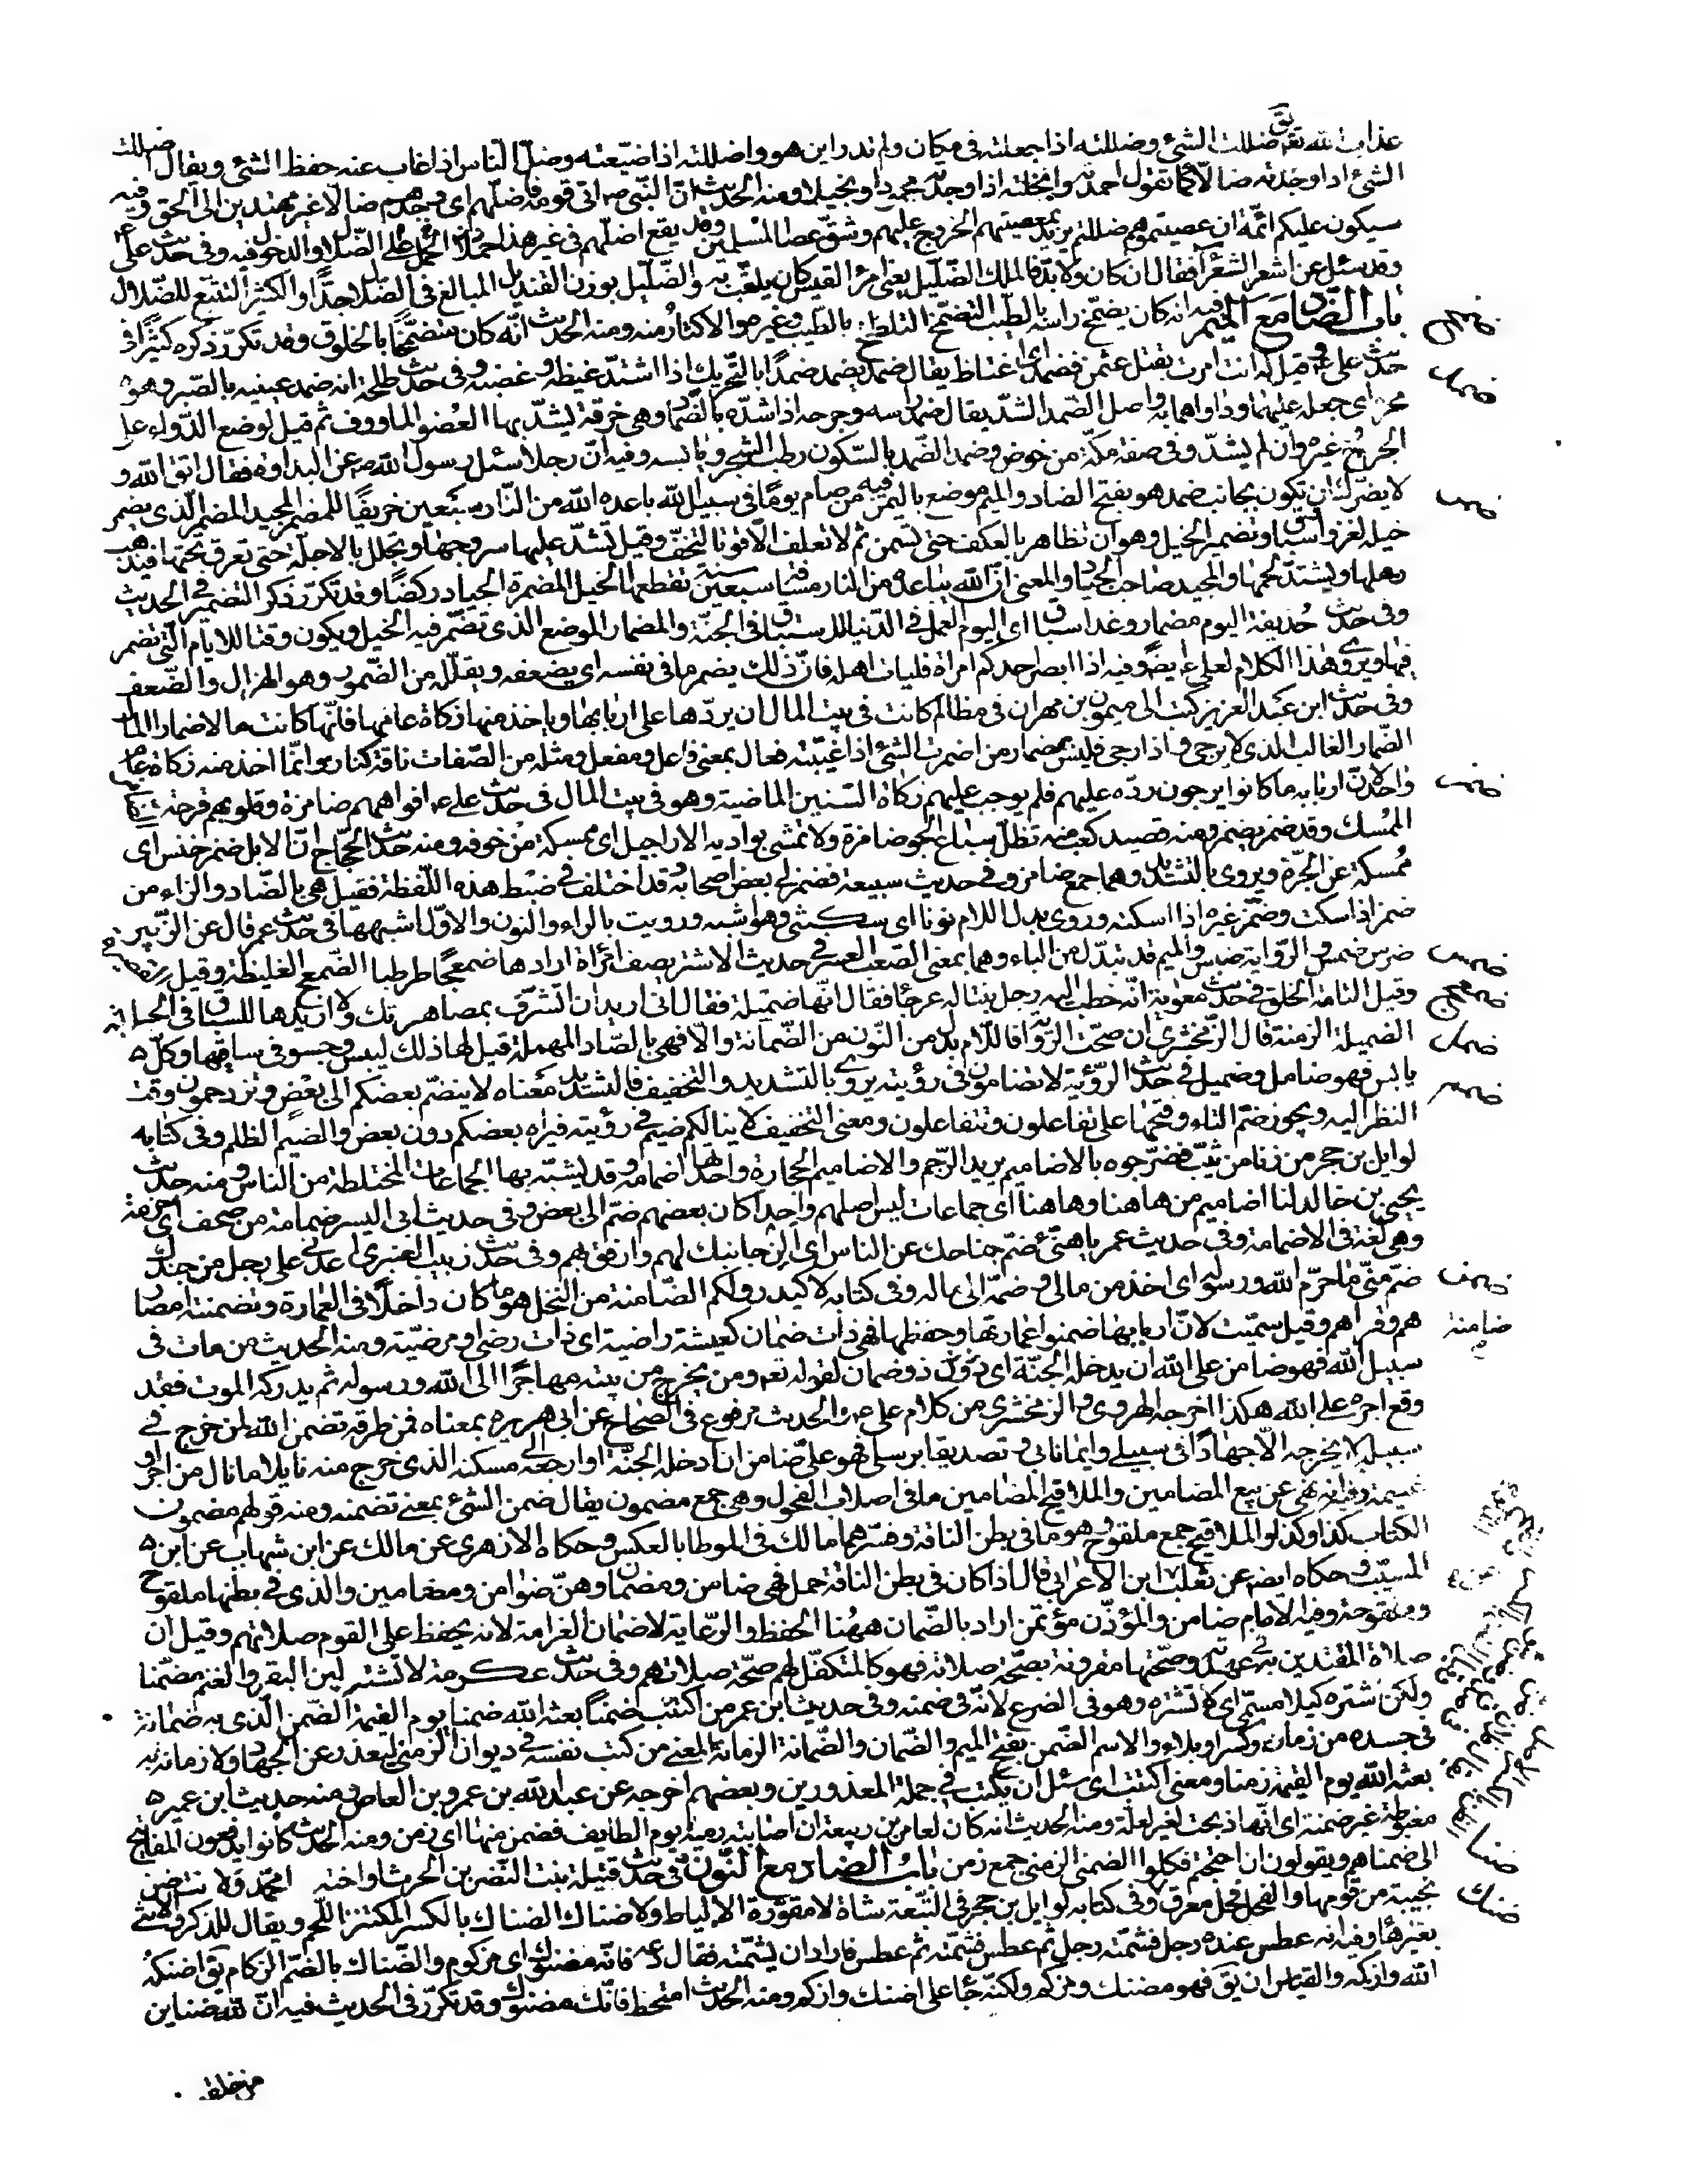 عذاب الله تعم يق ضللت الشئ وضللته اذا جعلته فى مكان ولم تدر اين هو واضللته اذا ضيّعته وضلّ الناس اذا غاب عنه حفظ الشئ ويقال اضللت
الشئ اذا وجدته ضالّا كما تقول احمدته وابخلته اذا وجدته محمودا وبخيلا ومنه الحديث انّ النّبى ص اتى قومه فاضلّهم اى وجدهم ضالّا غير مهتدين الى الحق وفيه
سيكون عليكم ائمّة ان عصيتموهم ضللتم يريد بمعصيتهم الخروج عليهم وشقّ عصا المسلمين وقد يقع اضلّهم فى غير هذا على الحمل على الضّلال والدخول فيه وفى حديث علىّ
وقد سئل عن اشعر الشعراء فقال ان كان ولا بدّ فالملك الضّلّيل يعنى امرأ القيس كان يلقّب به والضّلّيل بوزن القنديل المبالغ فى الضلال جدّا والكثير التتبّع للضّلال
باب الضّاد مع الميم فيه انه كان يضمّخ راسه بالطيب التضمّخ التلطخ بالطيب وغيره والاكثار منه ومنه الحديث انّه كان متضمّخا بالخلوق وقد تكرّر ذكره كثيرًا فى
حديث علىّ وقيل له انت امرت بقتل عثمن فضمد اى اغتاظ يقال ضمد يضمد ضمدًا بالتّحريك اذا اشتدّ غيظه وغضبه وفى حديث طلحة انه ضمد عينيه بالصّبر وهو
محرم اى جعله عليهما وداواهما به واصل الضّمد الشدّ يقال ضمد راسه وجرحه اذا شدّه بالضّماد وهى خرقة يشدّ بها العضو الماووف ثم قيل لوضع الدّواء على
الجرح وغيره وان لم يشدّ وفى صفة مكّة من خوص وضمد الضّمد بالسّكون رطب الشجر ويابسه وفيه انّ رجلا سئل رسول الله ص عن البداوة فقال اتق الله و
لا يضرّك ان تكون بجانب ضمد هو بفتح الضاد والميم موضع باليمن فيه من صام يومًا فى سبيل الله باعده الله من النّار سبعين خريفًا للمضمّر المجيد المضمر الّذى يضمر
خيله لغزو او سباق وتضمير الخيل وهو ان تظاهر بالعلف حتى تسمن ثم لا تعلف الّا قوتا لتخفّ وقيل تشدّ عليها سروجها وتجلّل بالاجلّة حتى تعرق تحتها فيذهب
رهلها ويشتدّ لحمها والمجيد صاحب الجياد والمعنى انّ الله يباعده من النار مسافة سبعين سنة تقطعها الخيل المضمرة الجياد ركضًا وقد تكرّر ذكر التضمير فى الحديث
وفى حديث حذيفة اليوم مضمار وغدا سباق اى اليوم العمل فى الدّنيا للاستباق فى الجنّة والمضمار الموضع الذى تضمّر فيه الخيل ويكون وقتا للايام الّتى تضمر
فيها ويروى هذا الكلام لعلى ع ايضًا وفيه اذا ابصر احدكم امراة فليات اهله فانّ ذلك يضمر ما فى نفسه اى يضعفه ويقلّله من الضّمور وهو الهزال والضّعف
وفى حديث ابن عبد العزيز كتب الى ميمون بن مهران فى مظالم كانت فى بيت المال ان يردّها على اربابها وياخذ منها زكاة عامها فانّها كانت مالا ضمارا المال
الضّمار الغائب الذى لا يرجى واذا رجى فليس بضمار من اضمرت الشئ اذا غيّبته فعال بمعنى فاعل ومفعل ومثله من الصّفات ناقة كناز وانّما اخذ منه زكاة عام
واحد لانّ اربابه ما كانوا يرجون ردّه عليهم فلم يوجب عليهم زكاة السّنين الماضية وهو فى بيت المال فى حديث على ع افواههم ضامزة وقلوبهم قرحة
الممسك وقد ضمز يضمز ومنه قصيد كعب منه تظلّ سباع الجوّ ضامزة ولا تمشى بواديه الاراجيل اى ممسكة من خوفه ومنه حديث الحجّاج انّ الابل ضمز خنس اى
ممسكة عن الجرّة ويروى بالتشديد وهما جمع ضامز وفى حديث سبيعة فضمز لى بعض اصحابه قد اختلف فى ضبط هذه اللّفظة فقيل هى بالضّاد والزاء من
ضمز اذا سكت وضمّز غيره اذا اسكته وروى بدل اللام نونا اى سكتنى وهو اشبه ورويت بالراء والنون والاوّل اشبهها فى حديث عمر قال عن الزّبير
ضرس ضمس والرّواية ضبس والميم قد تبدّل من الباء وهما بمعنى الصّعب العسر فى حديث الاشتر يصف امرأة ارادها ضمعجًا طرطبا الضّمعج الغليظة وقيل
وقيل التامّة الخلق فى حديث معوية انّه خطب اليه رجل بنتا له عرجاء فقال انّها ضميلة فقال انى اريد ان اتشرّف بمصاهرتك ولا اريدها للسباق فى الحلبة
الضميلة الزمنة قال الزّمخشرى ان صحّت الرّواية فاللّام بدل من النّون من الضّمانة والّا فهى بالصّاد المهملة قيل لها ذلك ليبس وجسو فى ساقها وكلّ
يابس فهو ضامل وضميل فى حديث الرّؤية لا تضامون فى رؤيته يروى بالتشديد والتخفيف فالتشديد معناه لا ينضمّ بعضكم الى بعض وتزدحمون وقت
النظر اليه ويجوز ضمّ التاء وفتحها على تفاعلون وتتفاعلون ومعنى التخفيف لا ينالكم ضيم فى رؤيته فيراه بعضكم دون بعض والضيم الظلم وفى كتابه
لوايل بن حجر من زنا من ثيّب فضرّجوه بالاضاميم يريد الرّجم والاضاميم الحجارة واحدها اضمامة وقد يشبّه بها الجماعات المختلطة من الناس ومنه حديث
يحيى بن خالد لنا اضاميم من هاهنا وهاهنا اى جماعات ليس اصلهم واحدا كان بعضهم ضمّ الى بعض وفى حديث ابى اليسر ضمامة من صحف اى حزمة
وهى لغة فى الاضمامة وفى حديث عمر يا هنىّ ضمّ جناحك عن الناس اى الن جانبك لهم وارفق بهم وفى حديث زبيب العنبرى اعدنى على رجل من جندك
ضمّ منّى ما حرّم الله ورسوله اى اخذ من مالى وضمّه الى ماله وفى كتابه لاكيدر ولكم الضّامنة من النخل هو ما كان داخلًا فى العمارة وتضمنته امصار
هم وقراهم وقيل سمّيت لانّ اربابها ضمنوا عمارتها وحفظها فهى ذات ضمان كعيشة راضية اى ذات رضى او مرضيّة ومنه الحديث من مات فى
سبيل الله فهو ضامن على الله ان يدخله الجنّة اى ذو ضمان لقوله تعم ومن يخرج من بيته مهاجرًا الى الله ورسوله ثم يدركه الموت فقد
وقع اجره على الله هكذا اخرجه الهروى والزمخشرى من كلام على ع والحديث مرفوع فى الصّحاح عن ابى هريره بمعناه فمن طرقه تضمن الله لمن خرج فى
سبيله لا يخرجه الّا جهادًا فى سبيلى وايمانا بى وتصديقا برسلى فهو علىّ ضامن ان ادخله الجنّة او ارجعه الى مسكنه الذى خرج منه نايلا ما نال من اجر او
غنيمة وفيه انه نهى عن بيع المضامين والملاقيح المضامين ما فى اصلاب الفحول وهى جمع مضمون يقال ضمن الشئ بمعنى تضمنه ومنه قولهم مضمون
الكتاب كذا وكذا والملاقيح جمع ملقوح وهو ما فى بطن الناقة وفسّرهما مالك فى الموطا بالعكس وحكاه الازهرى عن مالك عن ابن شهاب عن ابن
المسيّب وحكاه ايضا عن ثعلب عن ابن الاعرابى قال اذا كان فى بطن الناقة حمل فهى ضامن ومضمان وهنّ ضوامن ومضامين والذى فى بطنها ملقوح
وملقوحة وفيه الامام ضامن والمؤذّن مؤتمن اراد بالضّمان ههنا الحفظ والرّعاية لا ضمان الغرامة لانه يحفظ على القوم صلاتهم وقيل ان
صلاة المقتدين به فى عهدته وصحّتها مقرونة بصحّة صلاته فهو كالمتكفّل لهم صحّة صلاتهم وفى حديث عكرمة لا تشتر لبن البقر والغنم مضمّنا
ولكن اشتره كيلا مسمّى اى لا تشتره وهو فى الضرع لانّه فى ضمنه وفى حديث ابن عمر من اكتتب ضمنًا بعثه الله ضمنا يوم القيمة الضّمن الّذى به ضمانة
فى جسده من زمانة او كسر او بلاء والاسم الضّمن بفتح الميم والضّمان والضّمانة الزمانة المعنى من كتب نفسه فى ديوان الزمنى ليعذر عن الجهاد ولا زمانة به
بعثه الله يوم القيمة زمنا ومعنى اكتتب اى سئل ان يكتب فى جملة المعذورين وبعضهم اخرجه عن عبد الله بن عمرو بن العاص ومنه حديث ابن عمير
معبوطة غير ضمنة اى انّها ذبحت لغير علّة ومنه الحديث انه كان لعامر بن ربيعة ابن اصابته رمية يوم الطايف فضمن منها اى زمن ومنه الحديث كانوا يدفعون المفاتيح
الى ضمناهم ويقولون ان احتجتم فكلوا الضمنى الزمنى جمع زمن باب الضاد مع النّون فى حديث قتيلة بنت النّضر بن الحرث او اخته امحمّد ولانت ضنئ
نجيبة من قومها والفحل فحل معرق وفى كتابه لوايل بن حجر فى التّيعة شاة لا مقوّرة الالياط ولا ضناك الضناك بالكسر المكتنز اللّحم ويقال للذكر والانثى
بغير هاء وفيه انه عطس عنده رجل فشمّته رجل ثم عطس فشمّته ثم عطس فاراد ان يشمّته فقال دعه فانّه مضنوك اى مزكوم والضّناك بالضّم الزكام يق اضنكه
الله وازكمه والقياس ان يق فهو مضنك ومزكم ولكنّه جاء على اضنك وازكم ومنه الحديث امتخط فانّك مضنوك وقد تكرّر فى الحديث فيه انّ لله ضناين
من خلقه
ضمخ
ضمد
ضمر
ضمز
ضمس
ضمعج
ضمل
ضمم
ضمن
ضامنة
ضنا
ضنك